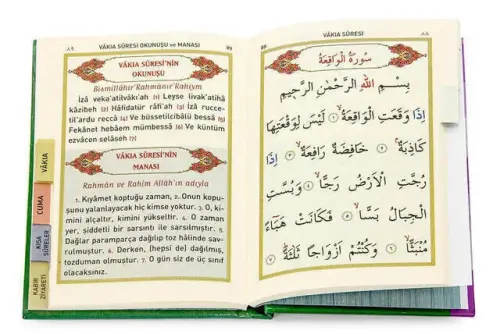 ٨٩ VÂKIA SÛRESİ OKUNUŞU ve MANASI 89
VÂKIA SÛRESİ'NİN
OKUNUŞU
Bismillâhir'Rahmânir'Rahıym
İzâ veka'atilvâkı'ah (1) Leyse livak'atihâ
kâzibeh (2) Hâfidatür râfi'ah (3) İzâ rucce-
til'ardu reccâ (4) Ve büssetilcibâlü bessâ (5)
Fekânet hebâem mümbessâ (6) Ve küntüm
ezvâcen selâseh (7)
VÂKIA SÛRESİ'NİN
MANASI
Rahmân ve Rahîm Allâh'ın adıyla
1. Kıyâmet koptuğu zaman, 2. Onun kopu-
şunu yalanlayacak hiç kimse yoktur. 3. O, ki-
mini alçaltır, kimini yükseltir. 4. O zaman
yer, şiddetli bir sarsıntı ile sarsılmıştır. 5.
Dağlar paramparça dağılıp toz hâlinde sav-
rulmuştur. 6. Derken, (hepsi de) dağılmış,
tozduman olmuştur. 7. O gün siz de üç sınıf
olacaksınız.
VÂKIA
CUMA
KISA
SÛRELER
KABİR
ZİYARETİ
VÂKIA SÛRESİ ٨٨
سُورَةُ الْوَاقِعَةِ
بِسْمِ اللهِ الرَّحْمٰنِ الرَّحِيمِ
إِذَا وَقَعَتِ الْوَاقِعَةُ ۙ ١ لَيْسَ لِوَقْعَتِهَا
كَاذِبَةٌ ۘ ٢ خَافِضَةٌ رَافِعَةٌ ۙ ٣ إِذَا
رُجَّتِ الْاَرْضُ رَجًّا ۙ ٤ وَبُسَّتِ
الْجِبَالُ بَسًّا ۙ ٥ فَكَانَتْ هَبَٓاءً
مُنْبَثًّا ۙ ٦ وَكُنْتُمْ اَزْوَاجًا ثَلٰثَةً ۜ ٧